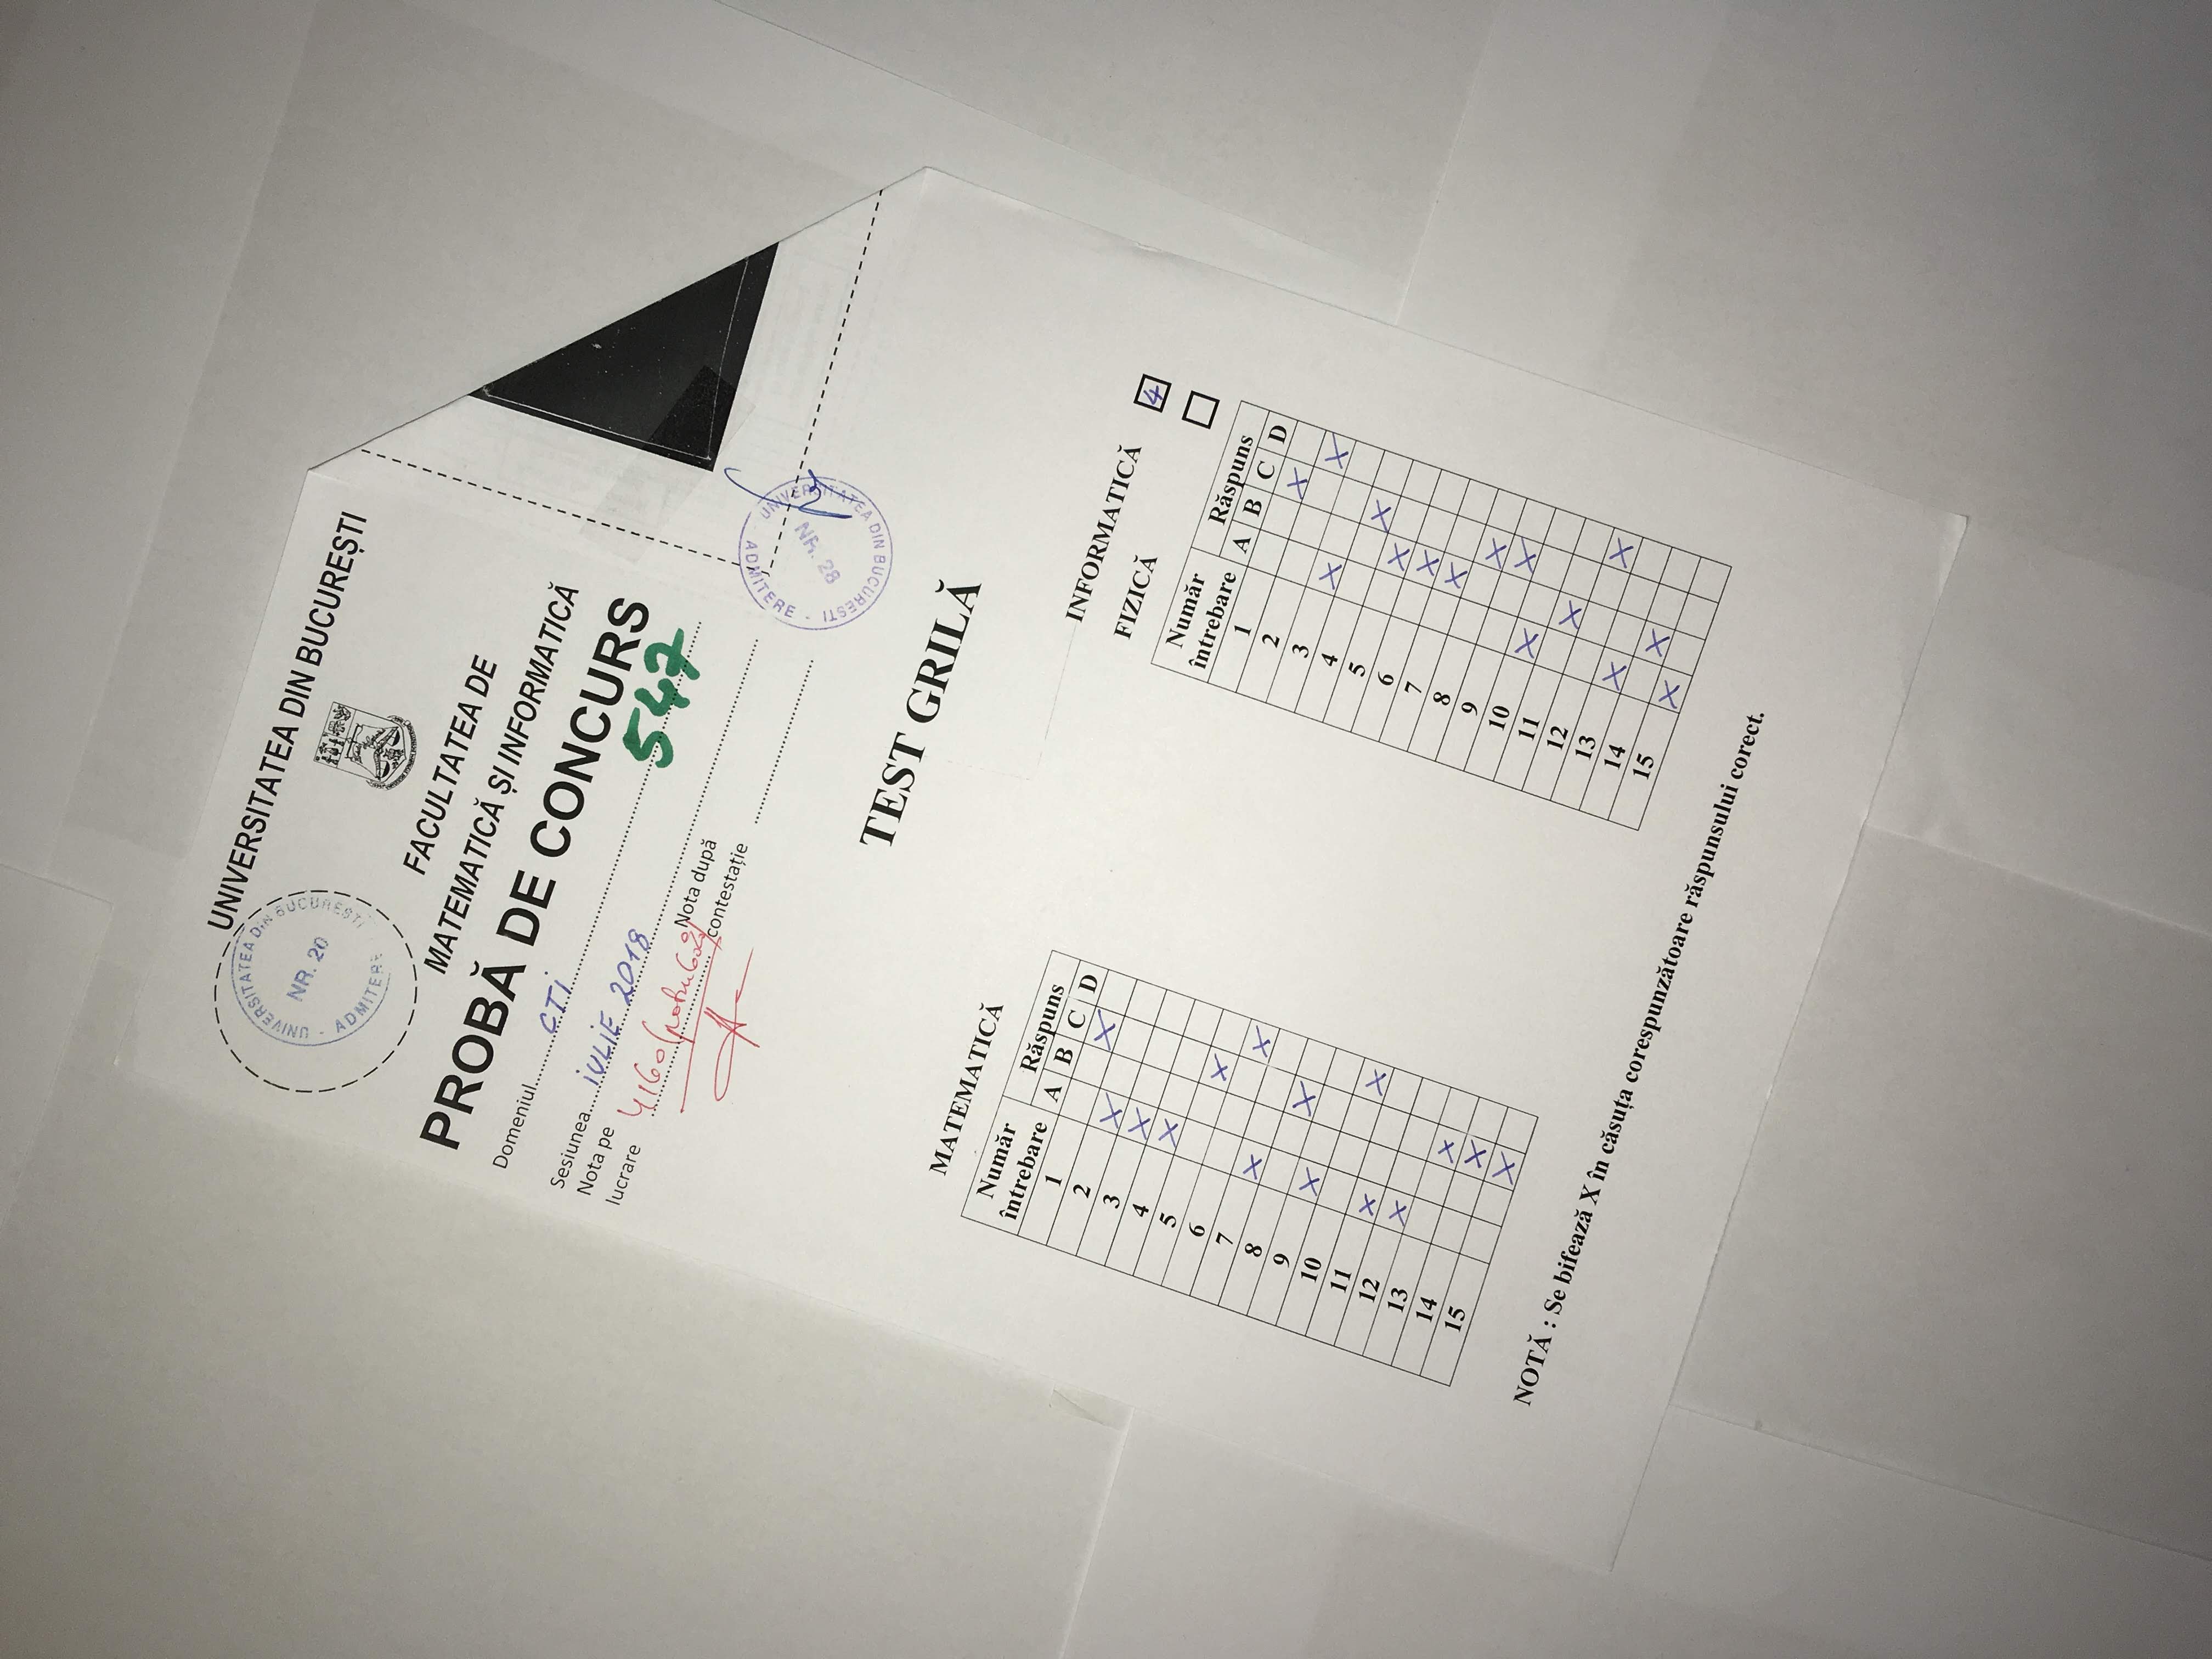 UNIVERSITATEA DIN BUCUREȘTI
UNIVERSITATEA DIN BUCUREȘTI
NR. 20
ADMITERE
FACULTATEA DE
MATEMATICĂ ȘI INFORMATICĂ
PROBĂ DE CONCURS
Domeniul CTi
547
Sesiunea iULiE 2018
Nota pe lucrare 4,60
Nota după contestație
UNIVERSITATEA DIN BUCUREȘTI
NR. 28
ADMITERE
TEST GRILĂ
MATEMATICĂ
Număr întrebare Răspuns
A B C D
1 X
2 X
3 X
4 X
5 X
6 X
7 X
8 X
9 X
10 X
11 X
12 X
13 X
14 X
15 X
INFORMATICĂ
FIZICĂ
Număr întrebare Răspuns
A B C D
1 X
2 X
3 X
4 X
5 X
6 X
7 X
8 X
9 X
10 X
11 X
12 X
13 X
14 X
15 X
NOTĂ : Se bifează X în căsuța corespunzătoare răspunsului corect.